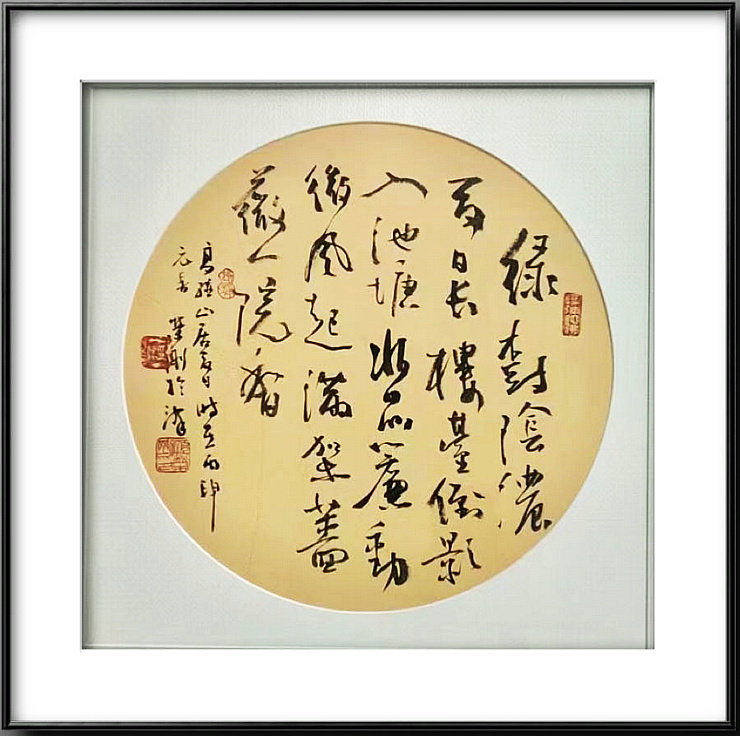 緑樹陰濃
夏日長樓臺倒影
入池塘水晶簾動
微風起滿架薔
薇一院香
高駢山居夏日時在丙申
元春